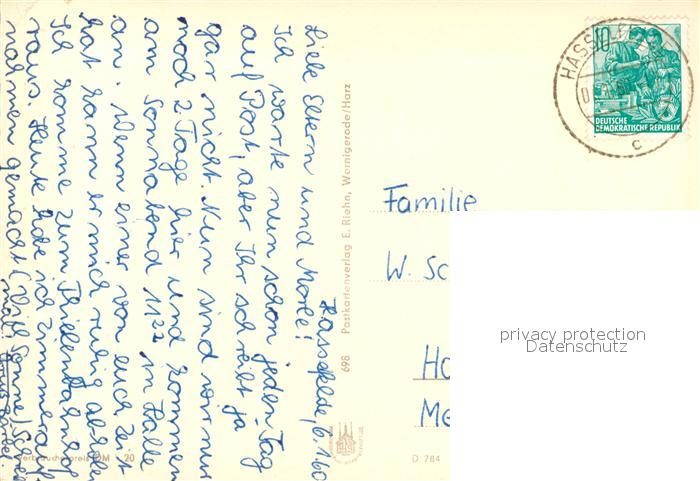 Hasselfelde, 6.1.60
Liebe Eltern und
Ich warte nun schon jeden Tag
auf Post, aber Ihr schreibt ja
gar nicht. Nun sind wir nur
noch 2 Tage hier und kommen
am Sonnabend 11²² in Halle
an. Wenn einer von euch Zeit
hat kann er mich ruhig abholen
Ich komme zum
raus. Heute habe ich
nahmen gemacht (Viel Sonne)
mal!
698 Postkartenverlag E. Riehn, Wernigerode/Harz
Verbraucherpreis DM -.20
D 784
10
DEUTSCHE
DEMOKRATISCHE REPUBLIK
HASS
c
Familie
W. Sc
Ha
Me
privacy protection
Datenschutz